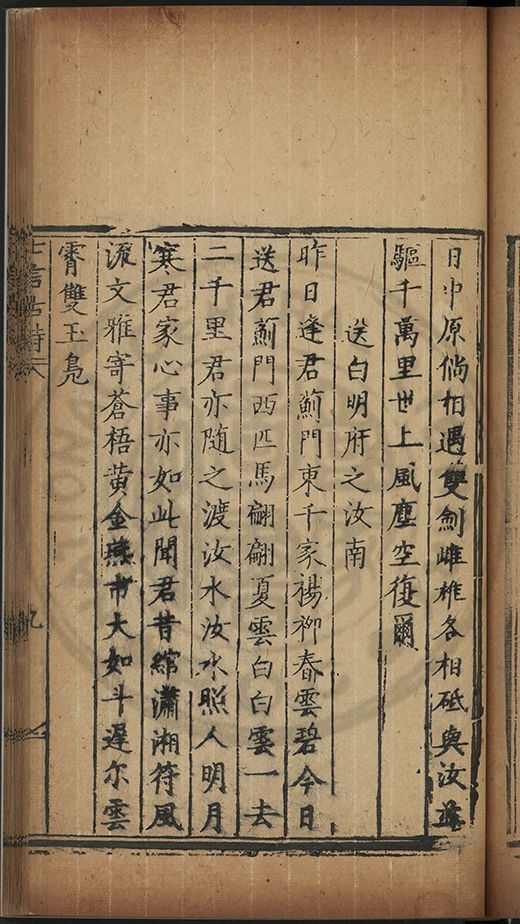 日中原倘相遇雙劍雌雄各相砥與汝並
驅千萬里世上風塵空復爾
送白明府之汝南
昨日逢君薊門東千家楊柳春雲碧今日
送君薊門西匹馬翩翩夏雲白白雲一去
二千里君亦隨之渡汝水汝水照人明月
寒君家心事亦如此聞君昔綰瀟湘符風
流文雅寄蒼梧黃金燕市大如斗遲尔雲
霄雙玉鳧
七言古詩六
九